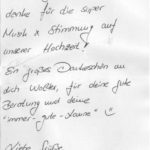 danke für die super
Musik & Stimmung auf
unserer Hochzeit!
Ein großes Dankeschön an
dich Walter, für deine gute
Beratung und deine
"immer-gute-Laune" ☺
Liebe Grüße